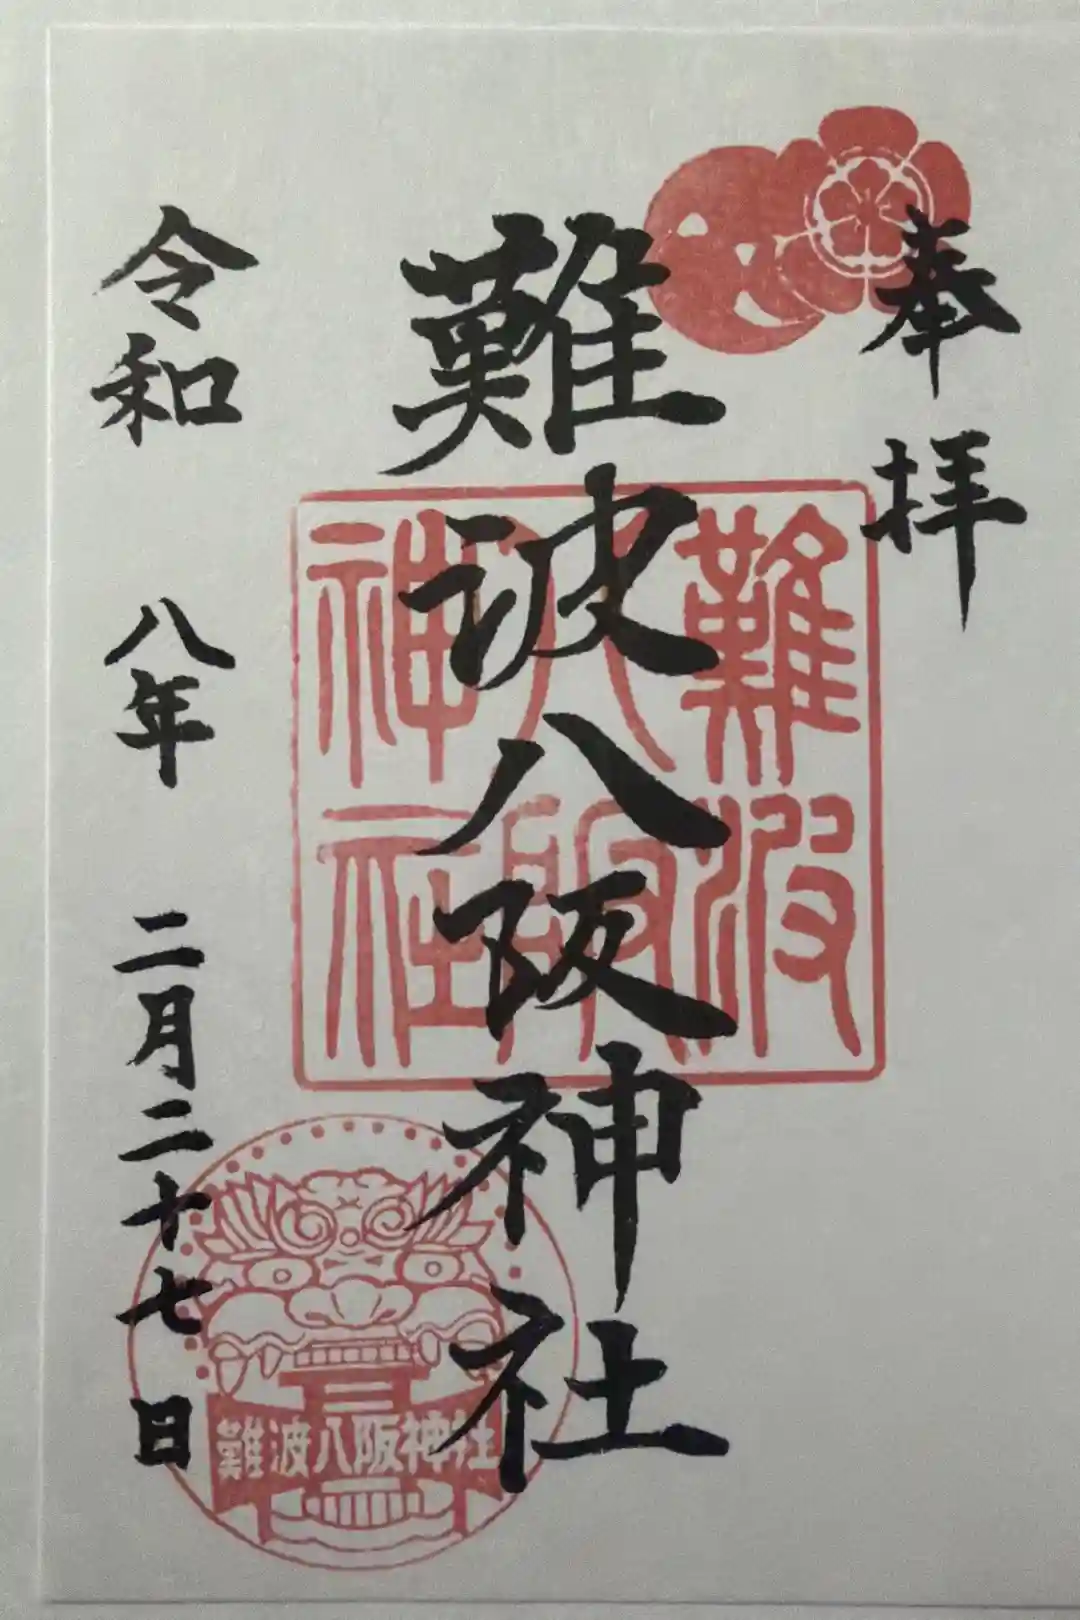 奉拝
難波八阪神社
難波
八阪
神社
令和八年二月二十七日
難波八阪神社